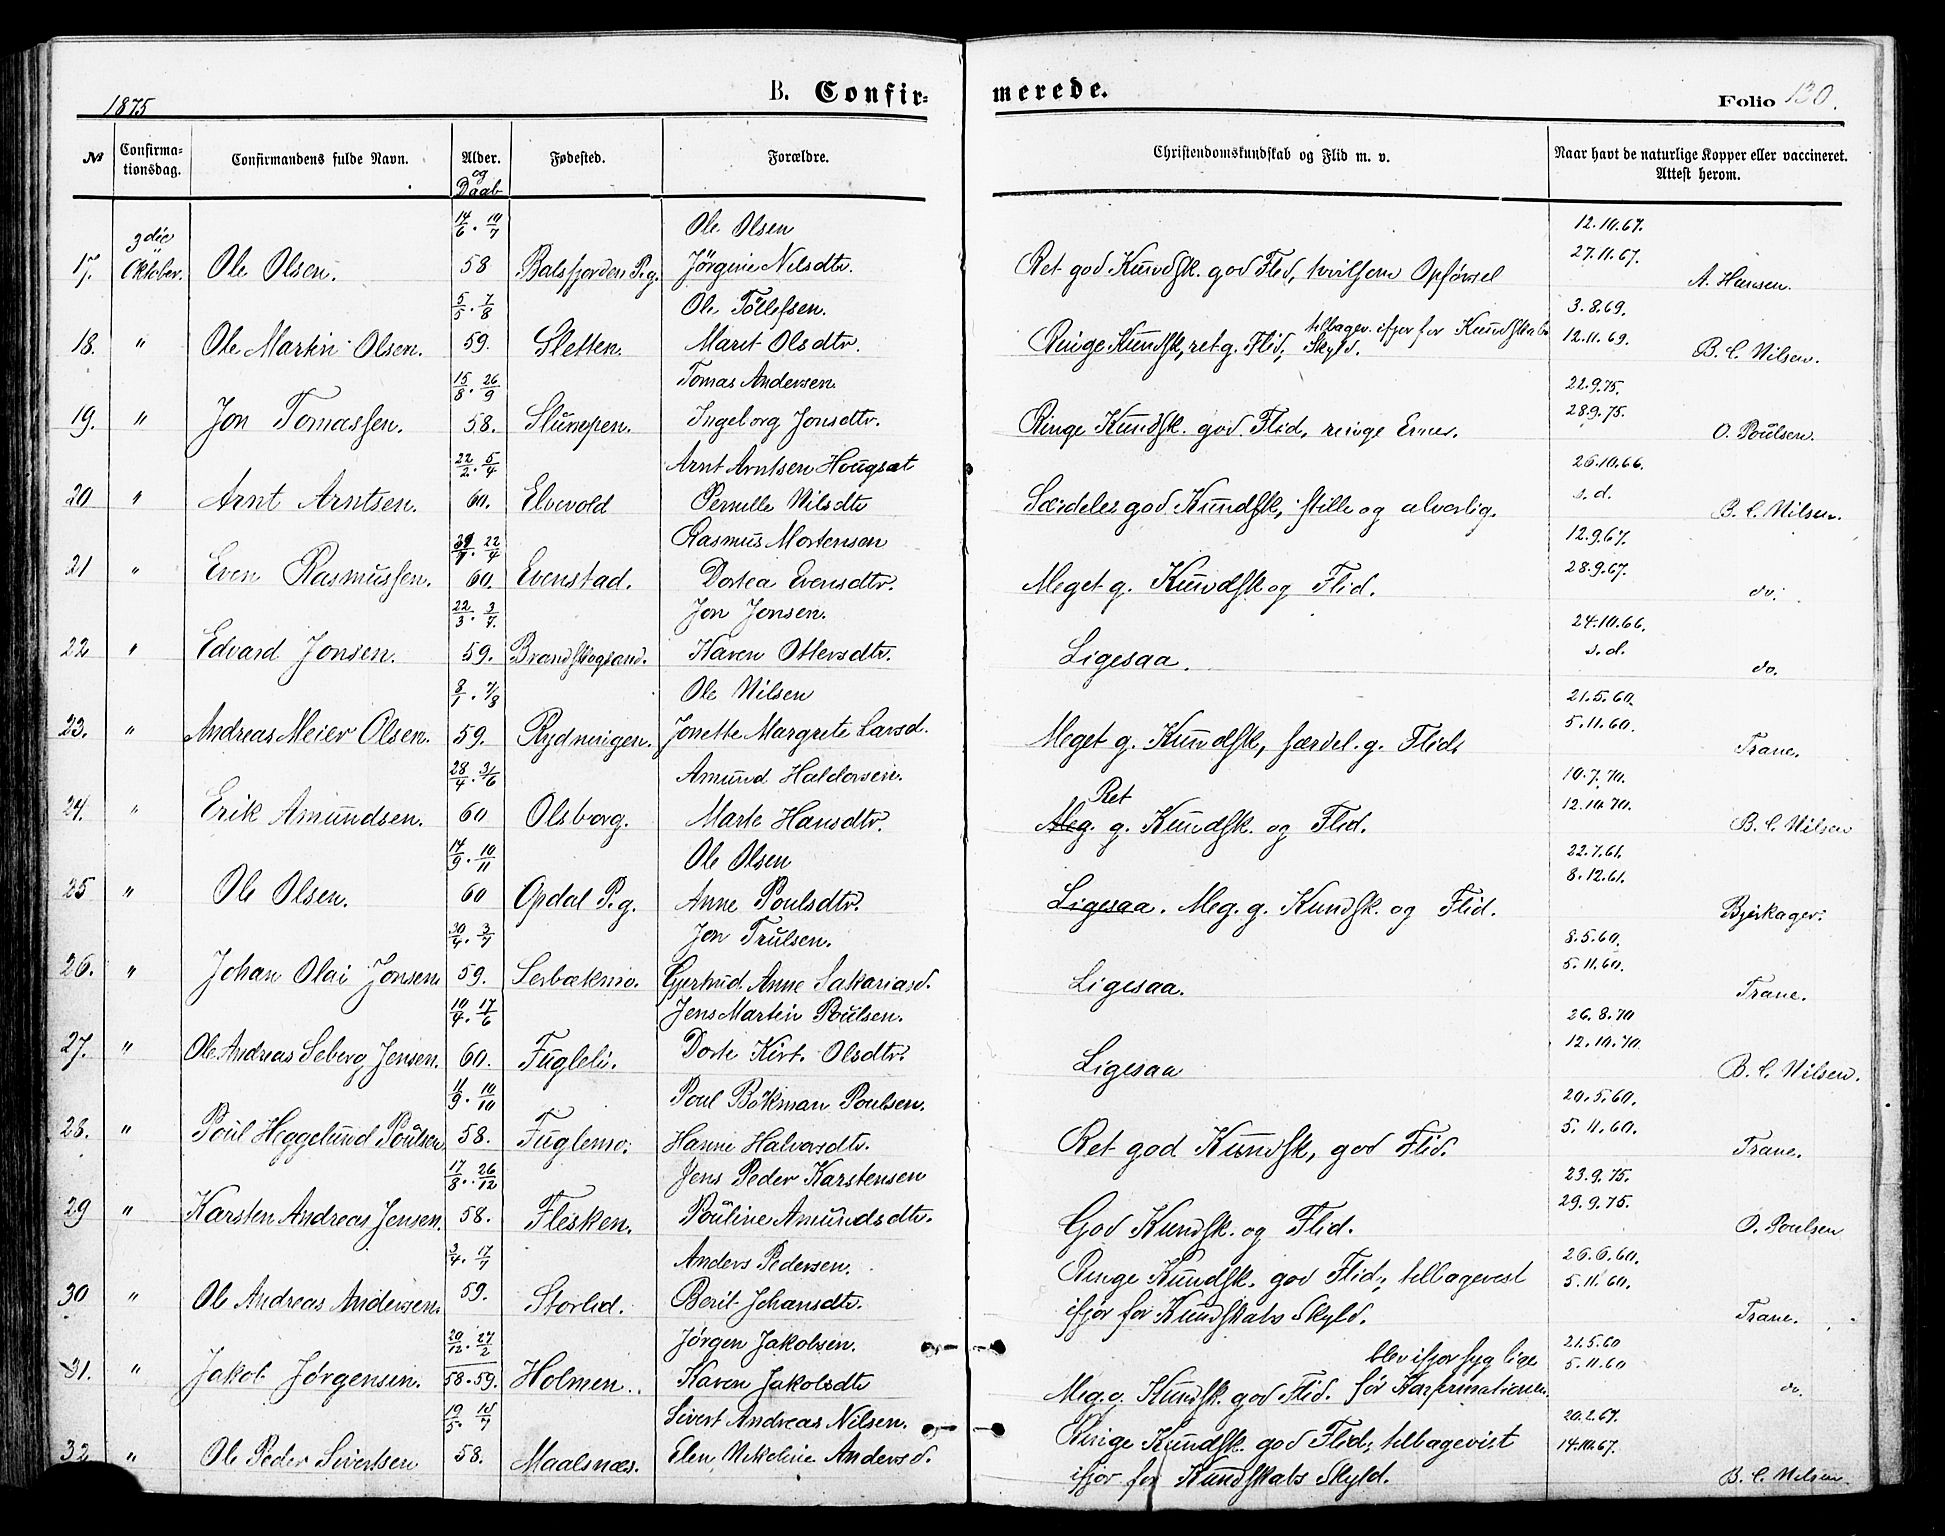 1875
B. Confirmerede.
Folio 130.
№ Confirmationsdag. Confirmandens fulde Navn. Alder. og Daab Fødested. Forældre. Christendomskundskab og Flid m. v. Naar havt de naturlige Kopper eller vaccineret. Attest herom.
3die 14/6. 10/7 Ole Olsen 12.10.67.
17. Oktober. Ole Olsen. 58 Balsfjorden P.g. Jörgine Nilsdtr. Ret god Kundsk. god Flid, tvilsom Opförsel 27.11.67. A. Hansen.
5/5. 7/8 Ole Töllefsen. tilbagev. ifjor for Kundskabs 3.8.69.
18. " Ole Martin Olsen. 59. Sletten. Marit Olsdtr. Ringe Kundsk, ret g. Flid, Skyld. 12.11.69. B. C. Nilsen.
15/8. 26/9 Tomas Andersen 22.9.75.
19. " Jon Tomassen. 58. Ingeborg Jonsdtr. Ringe Kundsk. god Flid, ringe Evner. 28.9.75. O. Poulsen.
22/2. 5/4 Arnt Arntsen Hougsæt 26.10.66.
20 " Arnt Arntsen. 60. Elvevold Pernille Nilsdtr Særdeles god Kundsk, stille og alvorlig. s.d. B. C. Nilsen.
22/4 Rasmus Mortensen 12.9.67.
21 " Even Rasmussen. 60. Evenstad. Dortea Evensdtr. Meget g. Kundsk og Flid. 28.9.67. do.
22/3. 3/7. Jon Jonsen. 24.10.66.
22 " Edvard Jonsen. 59. Brandskogsand. Karen Ottersdtr. Ligesaa. s.d. do.
8/1. 7/3 Ole Nilsen 21.5.60.
23. " Andreas Meier Olsen. 59. Rydningen. Jonette Margrete Larsd. Meget g. Kundsk, særdel. g. Flid. 5.11.60. Trane.
28/4. 3/6 Amund Haldorsen. Ret 10.7.70.
24. " Erik Amundsen. 60 Olsborg. Marte Hansdtr. Meg. g. Kundsk. og Flid. 12.10.70. B. C. Nilsen
17/9. 10/11 Ole Olsen 22.7.61.
25 " Ole Olsen. 60 Opdal P.g. Anne Poulsdtr. Ligesaa. Meg. g. Kundsk. og Flid. 8.12.61. Bjerkager.
30/4. 3/7 Jon Trulsen. 8.5.60.
26. " Johan Olai Jonsen 59. Serbækmo. Gjertrud Anne Sakariasd. Ligesaa. 5.11.60. Trane.
10/4. 17/6 Jens Martin Poulsen. 26.8.70
27. " Ole Andreas Seberg Jensen. 60. Fugleli. Dorte Kirt. Olsdtr. Ligesaa 12.10.70. B. C. Nilsen.
11/9. 10/10 Poul Bökman Poulsen. 20.5.60.
28. " Poul Heggelund Poulsen 58. Fuglemo. Hanne Halvorsdtr. Ret god Kundsk, god Flid. 5.11.60. Trane.
17/8. 26/12 Jens Peder Karstensen 23.9.75.
29 " Karsten Andreas Jensen. 58. Flesken. Pouline Amundsdtr. God Kundsk. og Flid. 29.9.75. O. Poulsen
3/4. 17/7 Anders Pedersen. Ringe Kundsk. god Flid, tilbagevist 26.6.60.
30 " Ole Andreas Andersen. 59. Storlid. Berit Johansdtr. ifjor for Kundskabs Skyld. 5.11.60. Trane.
20/12. 27/2 Jörgen Jakobsen. blev ifjor syg lige 21.5.60
31. " Jakob Jørgensen. 58.59. Holmen. Karen Jakobsdtr Meg. g. Kundsk. god Flid. för Konfirmationen. 5.11.60 do.
19/5. 18/7 Sivert Andreas Nilsen. Ringe Kundsk. god Flid, tilbagevist 20.2.67.
32 " Ole Peder Sivertsen 58. Maalsnæs. Elen Nikoline Andersd. ifjor for Kundskabs Skyld. 14.10.67. B. C. Nilsen